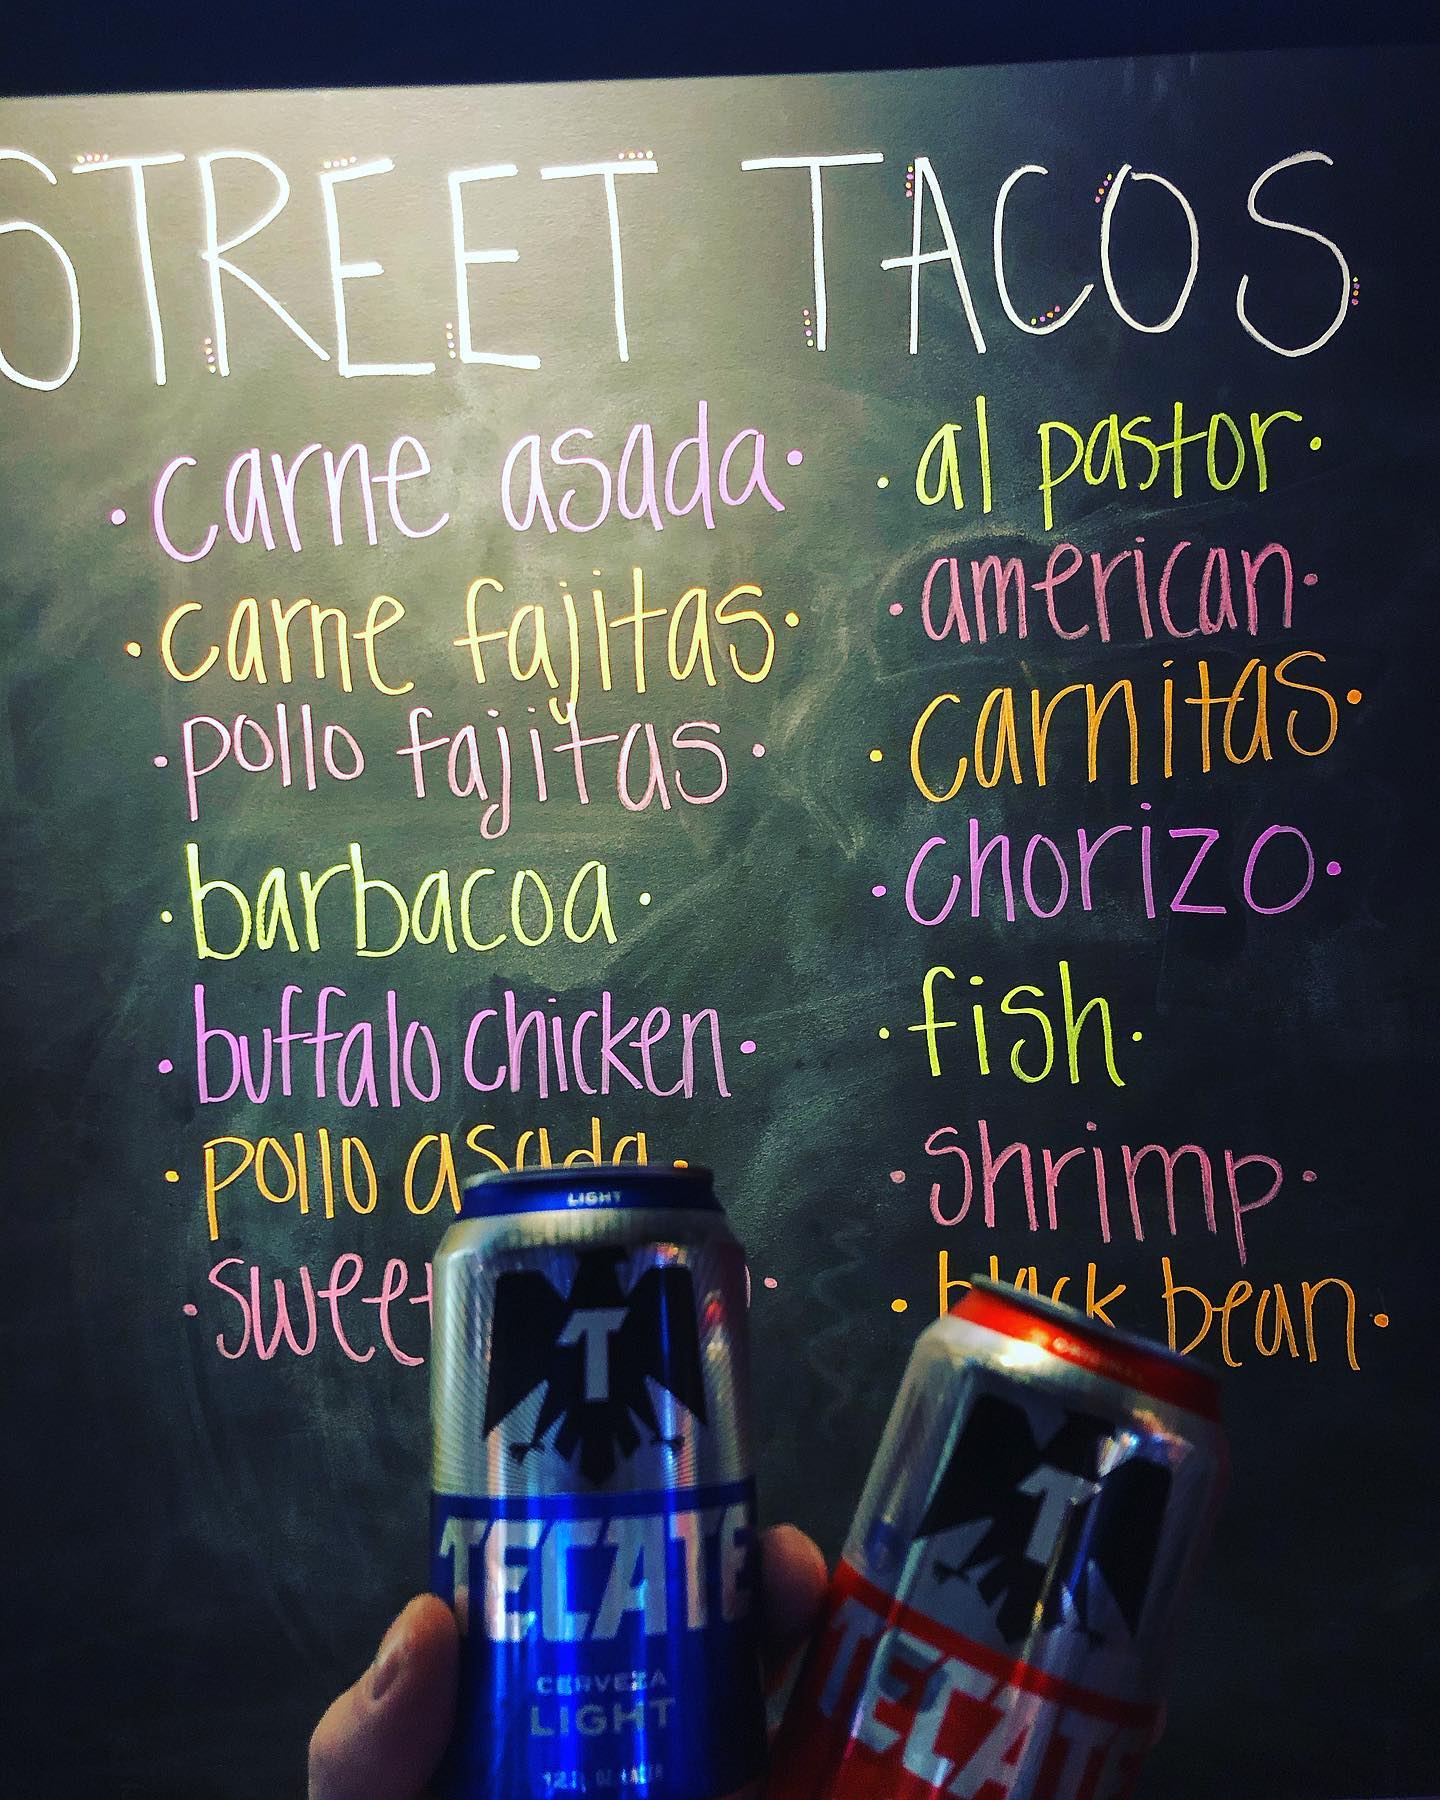 STREET TACOS
carne asada
carne fajitas
pollo fajitas
barbacoa
buffalo chicken
pollo asada
sweet
al pastor
american
carnitas
chorizo
fish
shrimp
black bean
LIGHT
T
TECATE
CERVEZA
LIGHT
12 FL OZ LAGER
ORIGINAL
T
TECATE